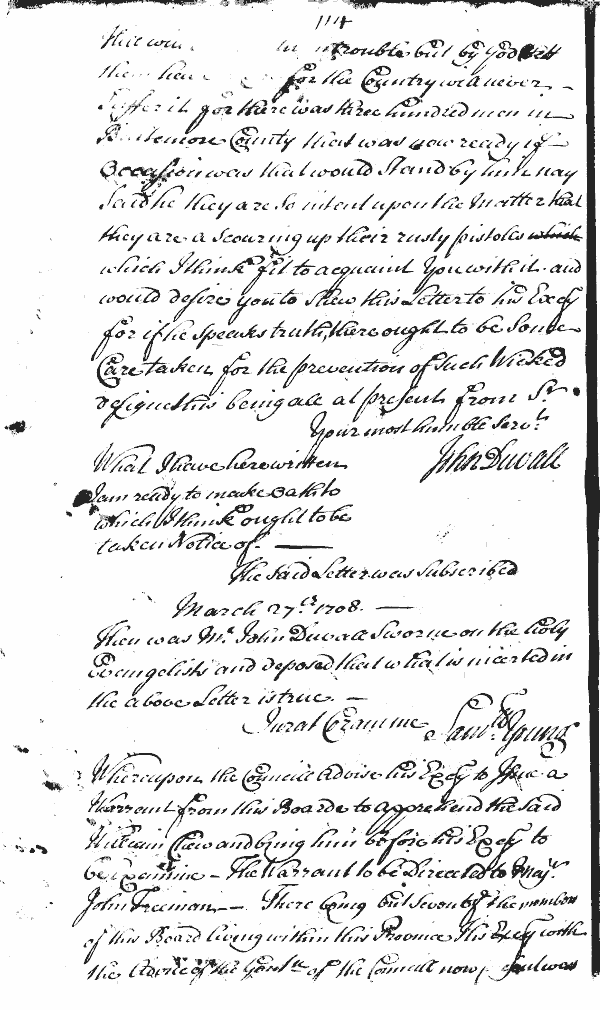 114
trouble but by God
for the Country will never
suffer it for there was three hundred men in
Baltemore County that was now ready if
Occasion was that would Stand by him nay
Said he they are So intent upon the Matter that
they are a Scouring up their rusty pistoles which
which I think fit to acquaint You with it and
would desire you to shew this Letter to his Excy
for if he Speaks truth, there ought to be Some
Care taken for the prevention of Such Wicked
designes this being all at present from Sr.
Your most humble Servt.
What I have here written John Duvall
I am ready to make Oath to
which I think ought to be
taken Notice of.
The Said Letter was Subscribed
March 27th. 1708.
Then was Mr. John Duvall Sworne on the holy
Evangelists and deposed that what is incerted in
the above Letter is true.
Jurat Coram me Samll. Young
Whereupon the Councill advise his Excy to Issue a
Warrant from this Boarde to apprehend the said
William Chew and bring him before his Excy to
be Examine - The Warrant to be Directed to Majr.
John Freeman There being but Seven of the members
of this Board living within this Province His Excy with
the Advice of the of the Councill now